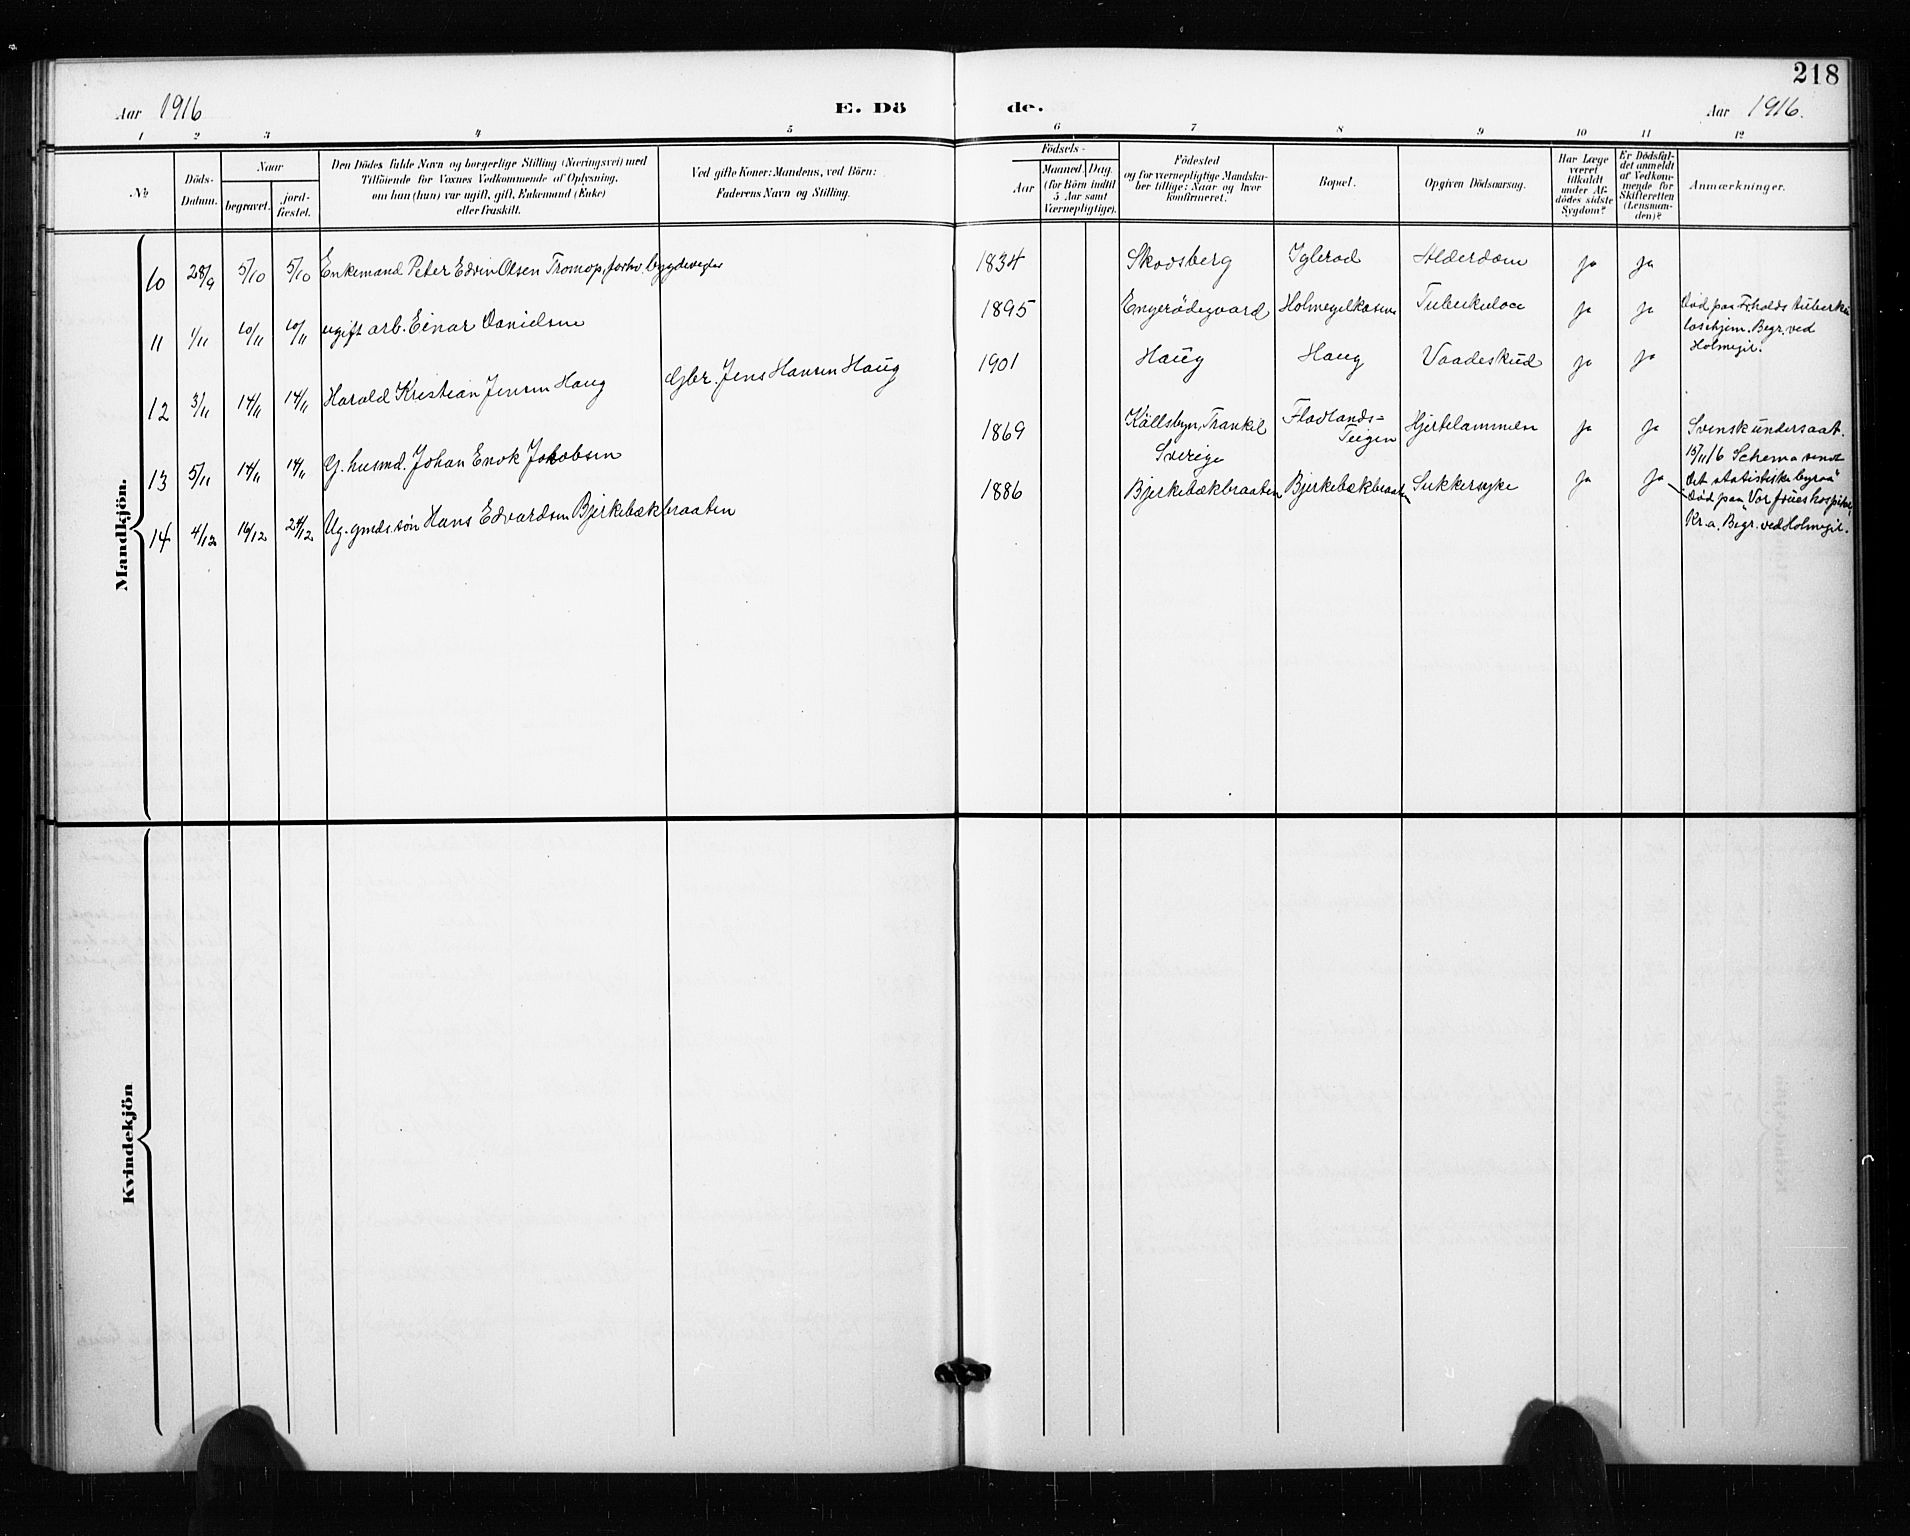 218
Aar 1916
E. Dö
de.
Aar 1916.
1 2 3 4 5 6 7 8 9 10 11 12
№
Döds-
Datum.
Naar
begravet.
jord-
fæstet.
Den Dödes fulde Navn og borgerlige Stilling (Næringsvei) med
Tilföiende for Voxnes Vedkommende af Oplysning,
om han (hun) var ugift, gift, Enkemand (Enke)
eller fraskilt.
Ved gifte Koner: Mandens, ved Börn:
Faderens Navn og Stilling.
Födsels-
Aar
Maaned. Dag.
(for Börn indtil
5 Aar samt
Værnepligtige).
Födested
og for værnepligtige Mandska-
ber tillige: Naar og hvor
konfirmeret.
Bopæl.
Opgiven Dödsaarsag.
Har Læge
været
tilkaldt
under Af-
dödes sidste
Sygdom?
Er Dödsfal-
det anmeldt
af Vedkom-
mende for
Skifteretten
(Lensman-
den)?
Anmærkninger.
Mandkjön.
10 28/9 5/10 5/10 Enkemand Peter Edvin Olsen Tromop, forhv. bygdevegter 1834 Skodsberg Iglerød Alderdom ja ja
11 1/11 10/11 10/11 ugift arb. Einar Danielsen 1895 Engerödegaard Tuberkulose ja ja
Död paa Fr.halds tuberku
losehjem. Begr. ved
Holmegil.
12 3/11 14/11 14/11 Harald Kristian Jensen Haug Gbr. Jens Hansen Haug 1901 Haug Haug Vaadeskud ja ja
13 5/11 14/11 14/11 G. husmd. Johan Enok Jakobsen 1869 Källsbyn, Trankil
Sverige
Flodlands-
Teigen
Hjertelammelse ja ja
Svensk undersaat.
15/11 16 Schema sendt
det statistiske byraa
14 4/12 16/12 24/12 Ug. gmds.sön Hans Edvardsen Bjerkebækbraaten 1886 Bjerkebækbraaten Bjerkebækbraaten Sukkersyke ja ja
Död paa "Vor frues hospital"
Kr.a. Begr. ved Holmegil.
Kvindekjön